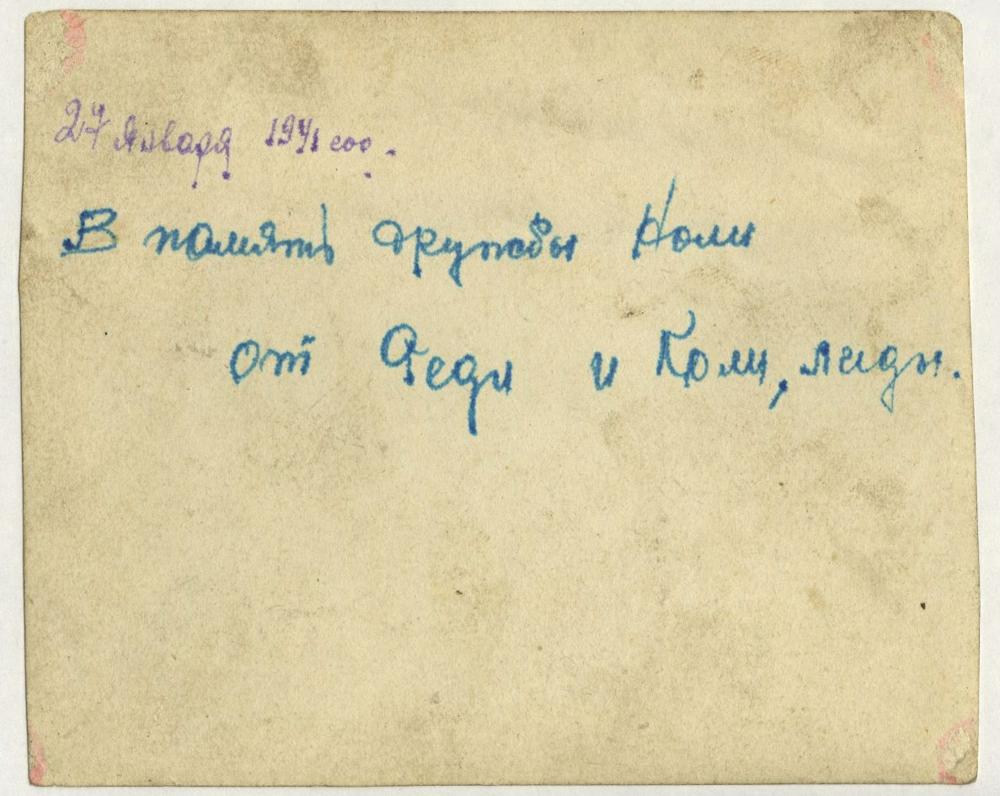 27 Января 1941 год.
В память дружбы Коли
от Феди и Коли, лиды.